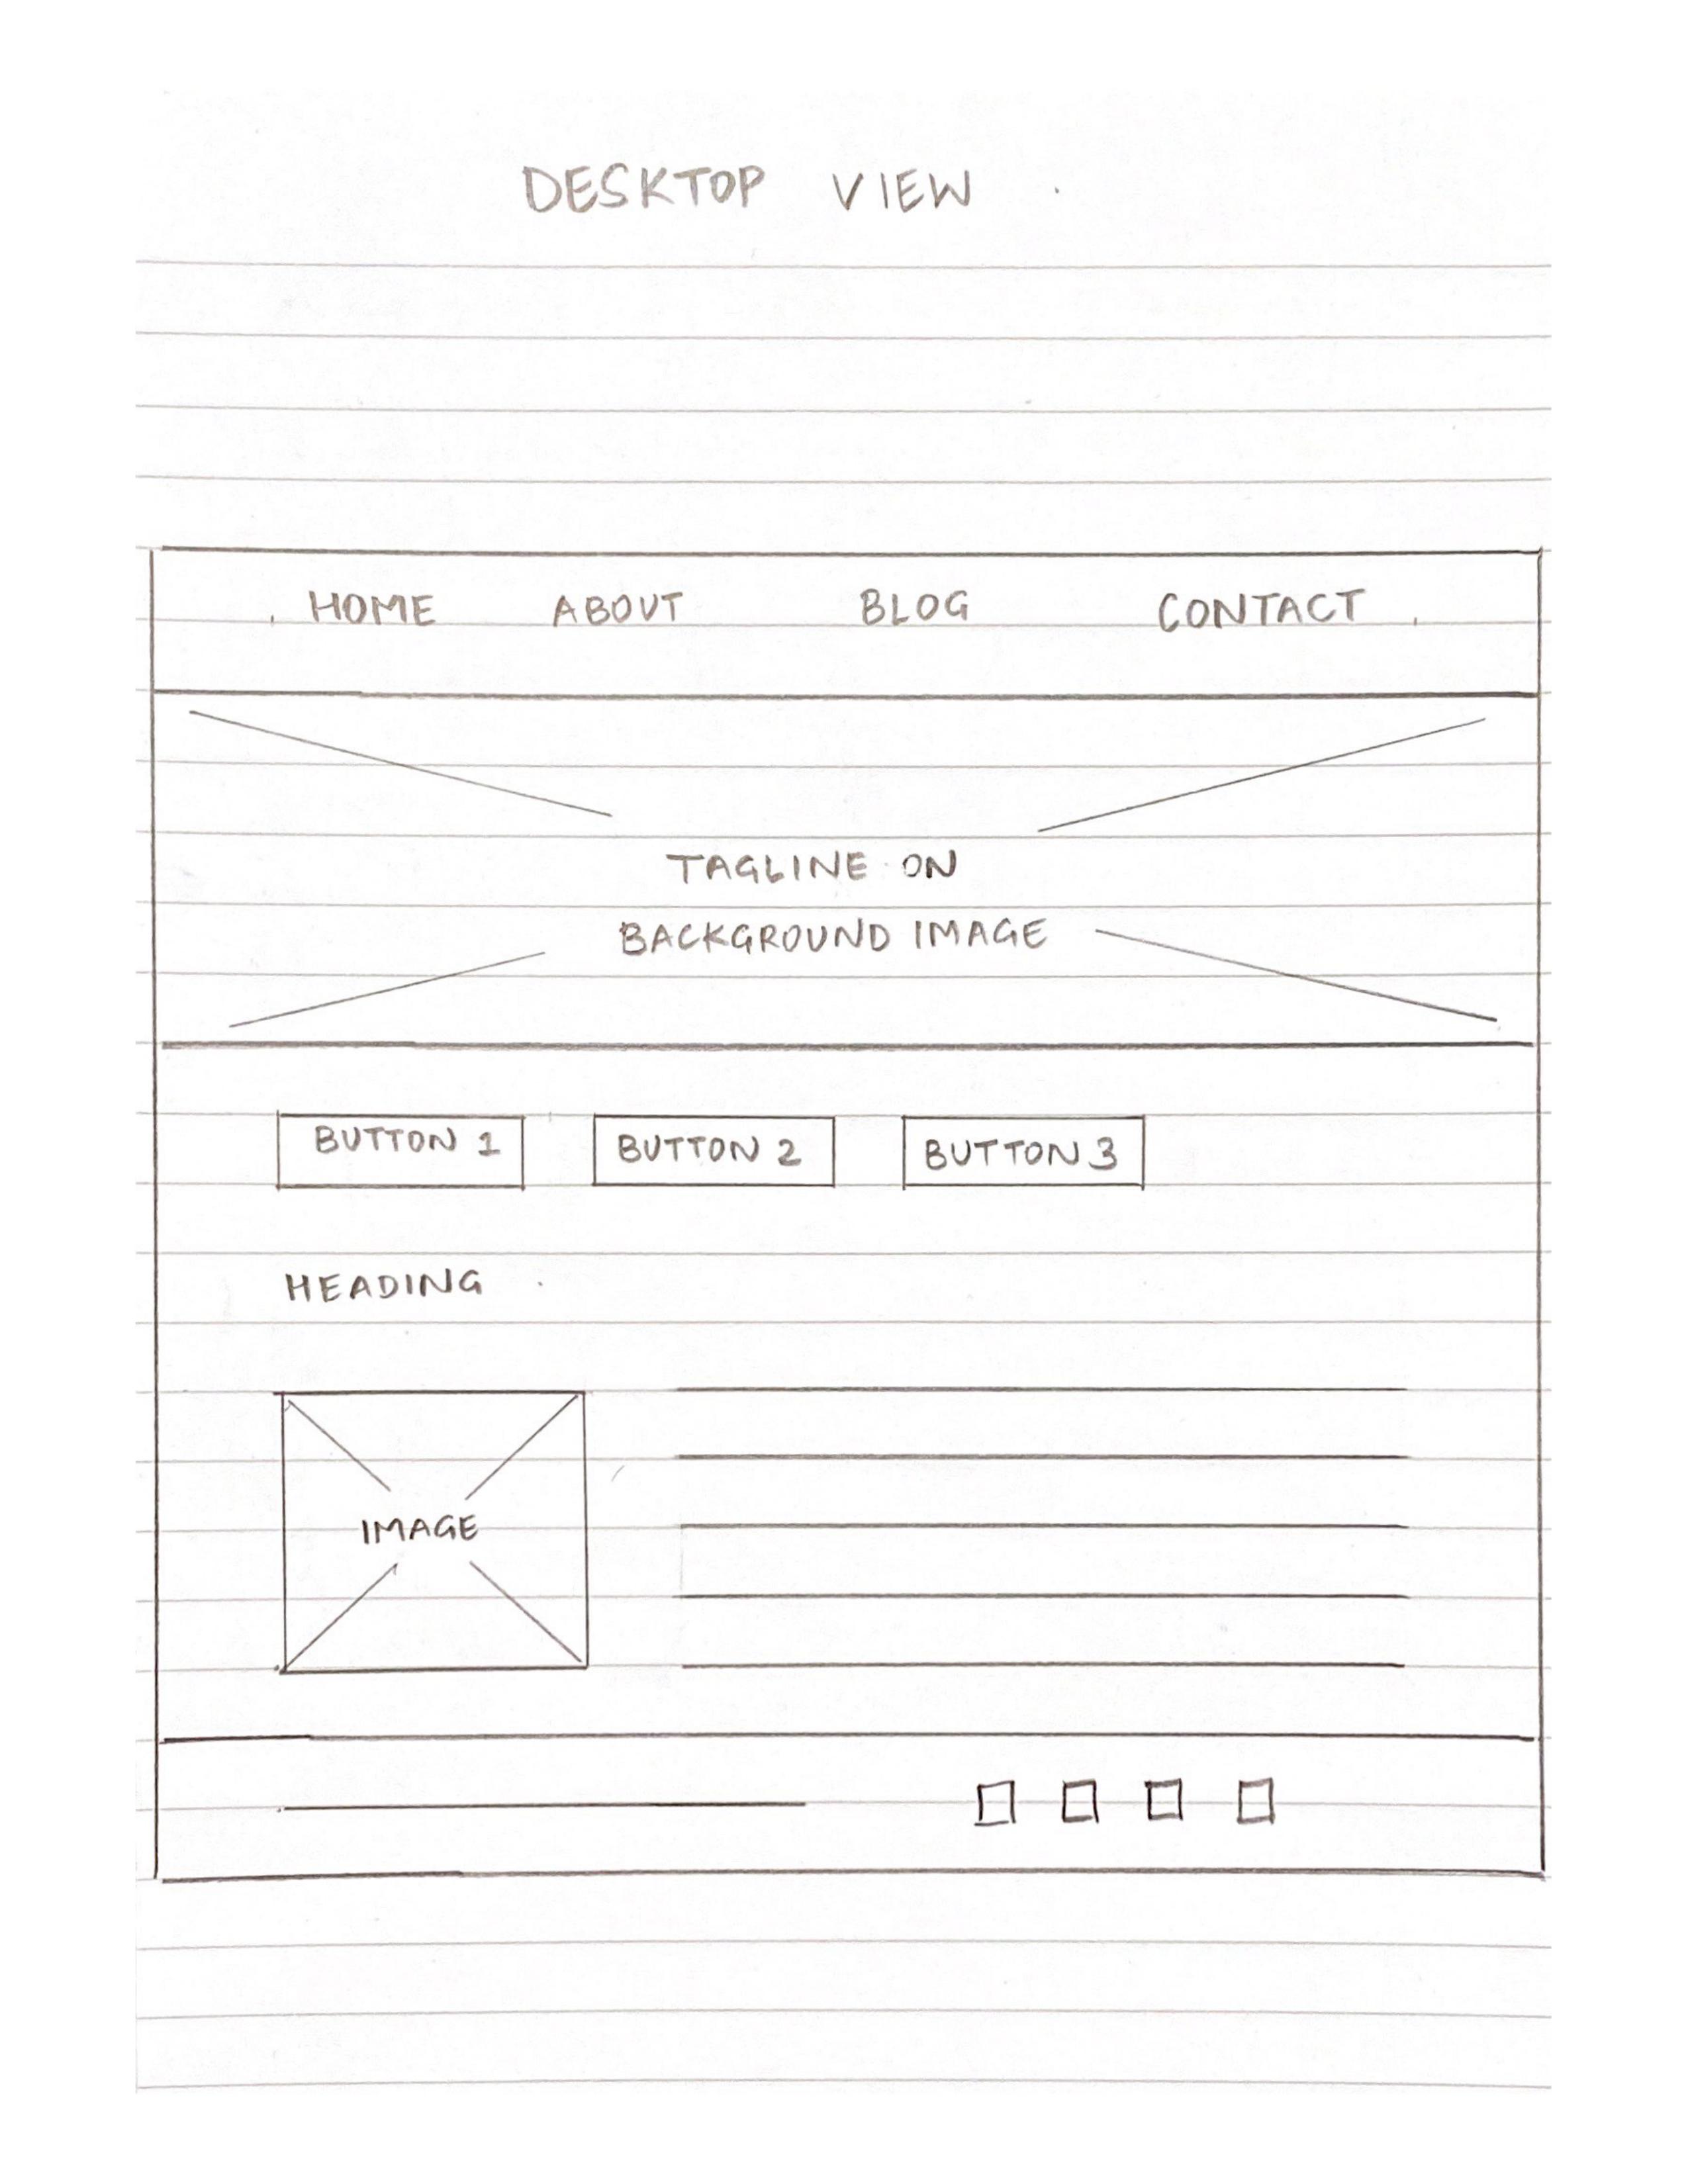 DESKTOP VIEW
HOME ABOUT BLOG CONTACT
TAGLINE ON
BACKGROUND IMAGE
BUTTON 1 BUTTON 2 BUTTON 3
HEADING
IMAGE